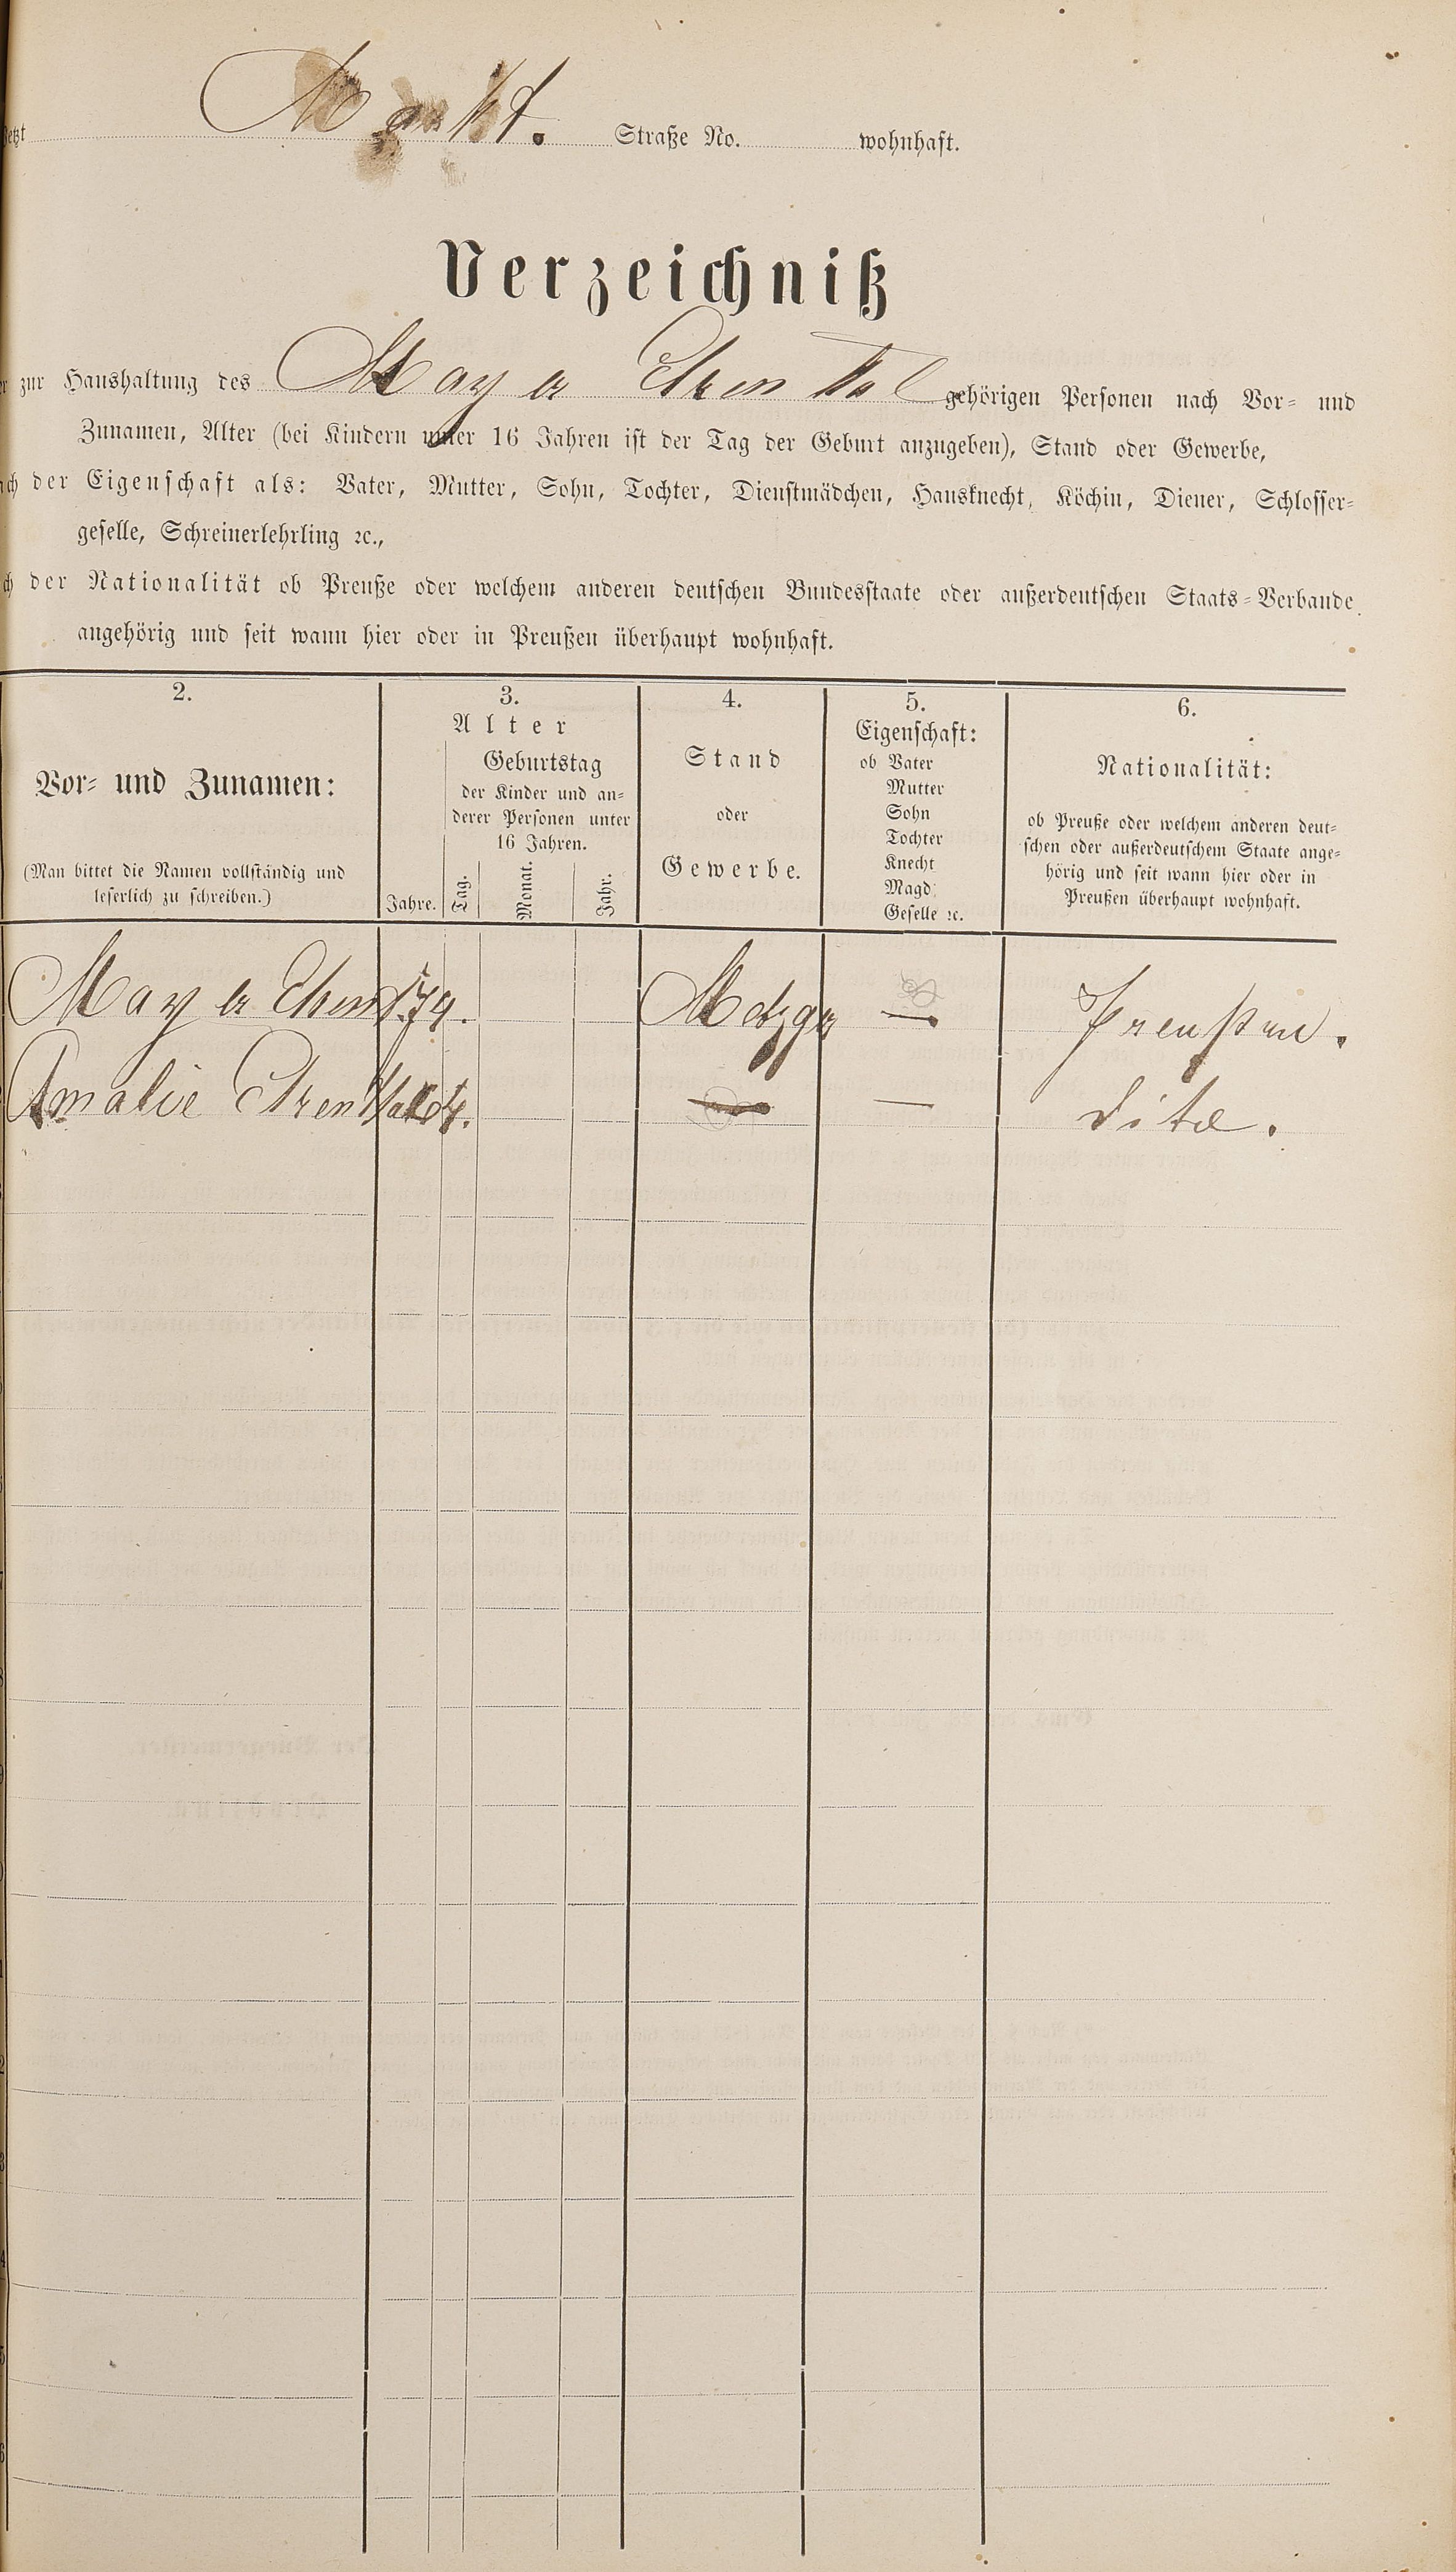 jetzt Markt. Straße No. wohnhaft.
Verzeichniß
zur Haushaltung des Mayer gehörigen Personen nach Vor- und
Zunamen, Alter (bei Kindern unter 16 Jahren ist der Tag der Geburt anzugeben), Stand oder Gewerbe,
der Eigenschaft als: Vater, Mutter, Sohn, Tochter, Dienstmädchen, Hausknecht, Köchin, Diener, Schlosser-
geselle, Schreinerlehrling ꝛc.,
der Nationalität ob Preuße oder welchem anderen deutschen Bundesstaate oder außerdeutschen Staats-Verbande
angehörig und seit wann hier oder in Preußen überhaupt wohnhaft.
2.
Vor- und Zunamen:
(Man bittet die Namen vollständig und
leserlich zu schreiben.)
3.
Alter
Geburtstag
der Kinder und an-
derer Personen unter
16 Jahren.
Jahre.
Tag.
Monat.
Jahr.
4.
Stand
oder
Gewerbe.
5.
Eigenschaft:
ob Vater
Mutter
Sohn
Tochter
Knecht
Magd
Geselle ꝛc.
6.
Nationalität:
ob Preuße oder welchem anderen deut-
schen oder außerdeutschem Staate ange-
hörig und seit wann hier oder in
Preußen überhaupt wohnhaft.
Mayer 79. Metzger — Preußen.
Amalie — — dito.